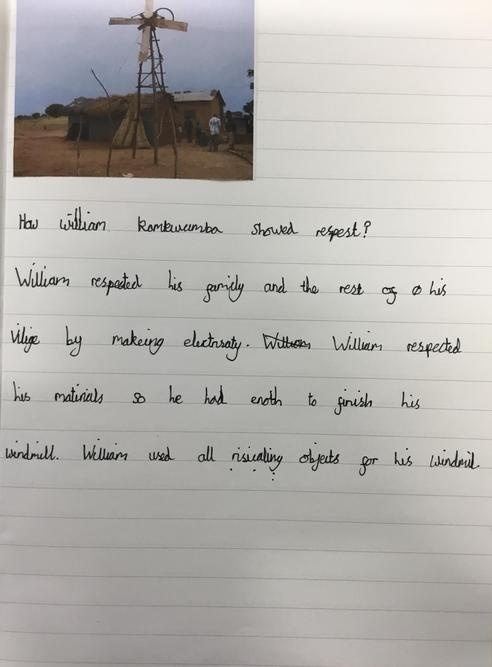 How william kamkwamba showed respest?
William respected his family and the rest of his
vilige by makeing electrisaty. William respected
his matirials so he had enoth to finish his
windmill. William used all risicaling objects for his windmil.